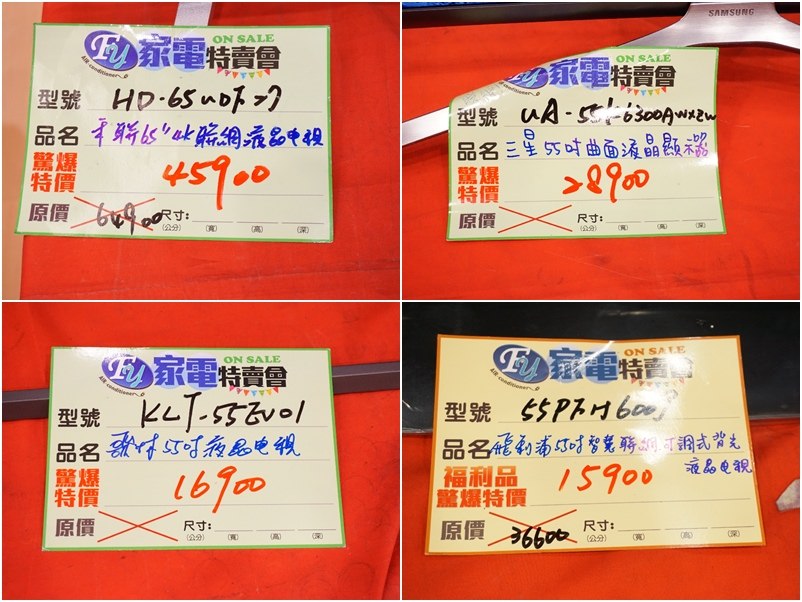 FU 家電特賣會 ON SALE
AIR conditioner
型號 HD-65UDF27
品名 禾聯65"4K聯網液晶电視
驚爆特價 45900
原價 64900 尺寸:
(公分) (寬) (高) (深)
SAMSUNG
家電特賣會 ON SALE
型號 UA-55K6300AWXZW
品名 三星55吋曲面液晶顯示器
驚爆特價 28900
原價 尺寸:
(公分) (寬) (高) (深)
FU 家電特賣會 ON SALE
AIR conditioner
型號 KLT-55EV01
品名 歌林55吋液晶电視
驚爆特價 16900
原價 尺寸:
(公分) (寬) (高) (深)
FU 家電特賣會 ON SALE
AIR conditioner
型號 55PFH6001
品名 飛利浦55吋智慧聯網可調式背光
液晶电視
福利品
驚爆特價 15900
原價 36600 尺寸:
(公分) (寬) (高) (深)